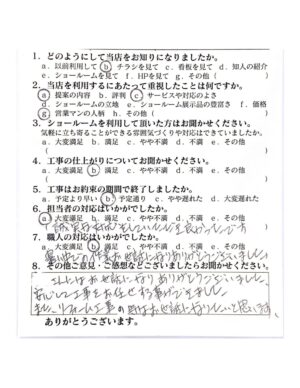 1．どのようにして当店をお知りになりましたか。
a．以前利用して b．チラシを見て c．看板を見て d．知人の紹介
e．ショールームを見て f．HPを見て g．その他（ ）
2．当店を利用するにあたって重視したことは何ですか。
a．提案の内容 b．評判 c．サービスや対応のよさ
d．ショールームの立地 e．ショールーム展示品の豊富さ f．価格
g．営業マンの人柄 h．その他（ ）
3．ショールームを利用して頂いた方はお聞かせください。
気軽に立ち寄ることができる雰囲気づくりや対応はできていましたか。
a．大変満足 b．満足 c．やや不満 d．不満 e．その他
（ ）
4．工事の仕上がりについてお聞かせください。
a．大変満足 b．満足 c．やや不満 d．不満 e．その他
（ ）
5．工事はお約束の期間で終了しましたか。
a．予定より早い b．予定通り c．やや遅れた d．大変遅れた
6．担当者の対応はいかがでしたか。
a．大変満足 b．満足 c．やや不満 d．不満 e．その他
誠実な対応をしていただき良かったです
7．職人の対応はいかがでしたか。
a．大変満足 b．満足 c．やや不満 d．不満 e．その他
暑い中での作業お世話になりありがとうございました
8．その他ご意見・ご感想などございましたらお聞かせください。
お世話になり ありがとうございました
安心して工事をお任せする事ができました
また、リフォーム工事の時はお世話になりたいと思います
ありがとうございます。